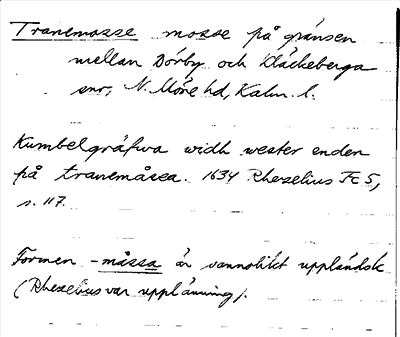 Tranemosse mosse på gränsen
mellan Dörby och Kläckeberga
snr, N. Möre hd, Kalm. l.
Kumbelgräfwa widh wester enden
på tranemåsea. 1634 Rhezelius Fc 5,
s. 117.
Formen -måssa är sannolikt uppländsk
(Rhezelius var upplänning).